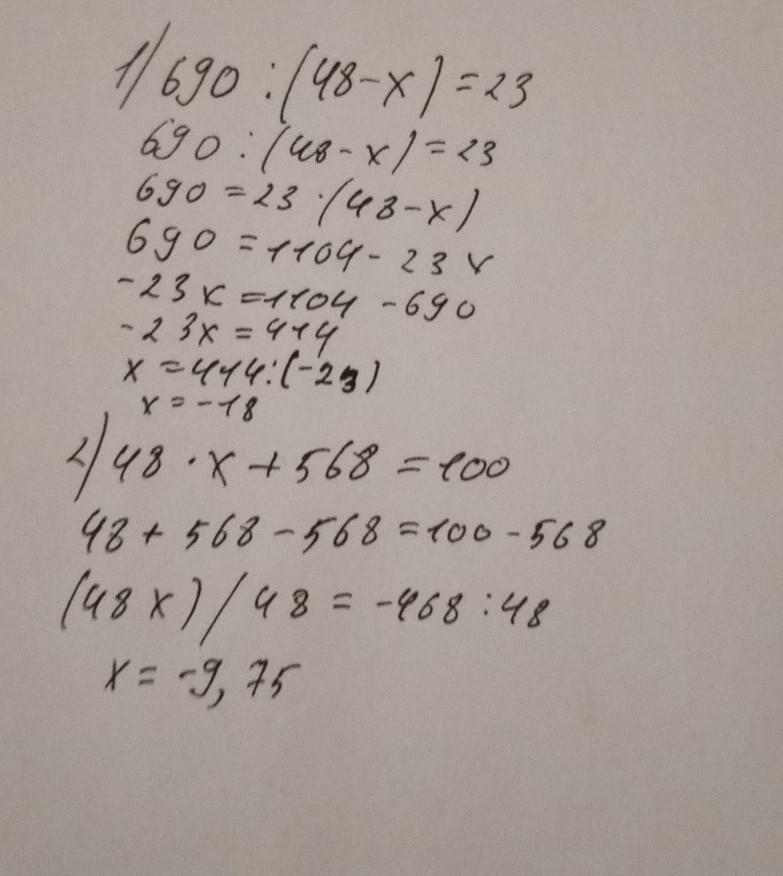 1) 690 : (48 - x) = 23
690 : (48 - x) = 23
690 = 23 · (48 - x)
690 = 1104 - 23x
-23x = 1104 - 690
-23x = 414
x = 414 : (-23)
x = -18
2) 48 · x + 568 = 100
48 + 568 - 568 = 100 - 568
(48x) / 48 = -468 : 48
x = -9,75